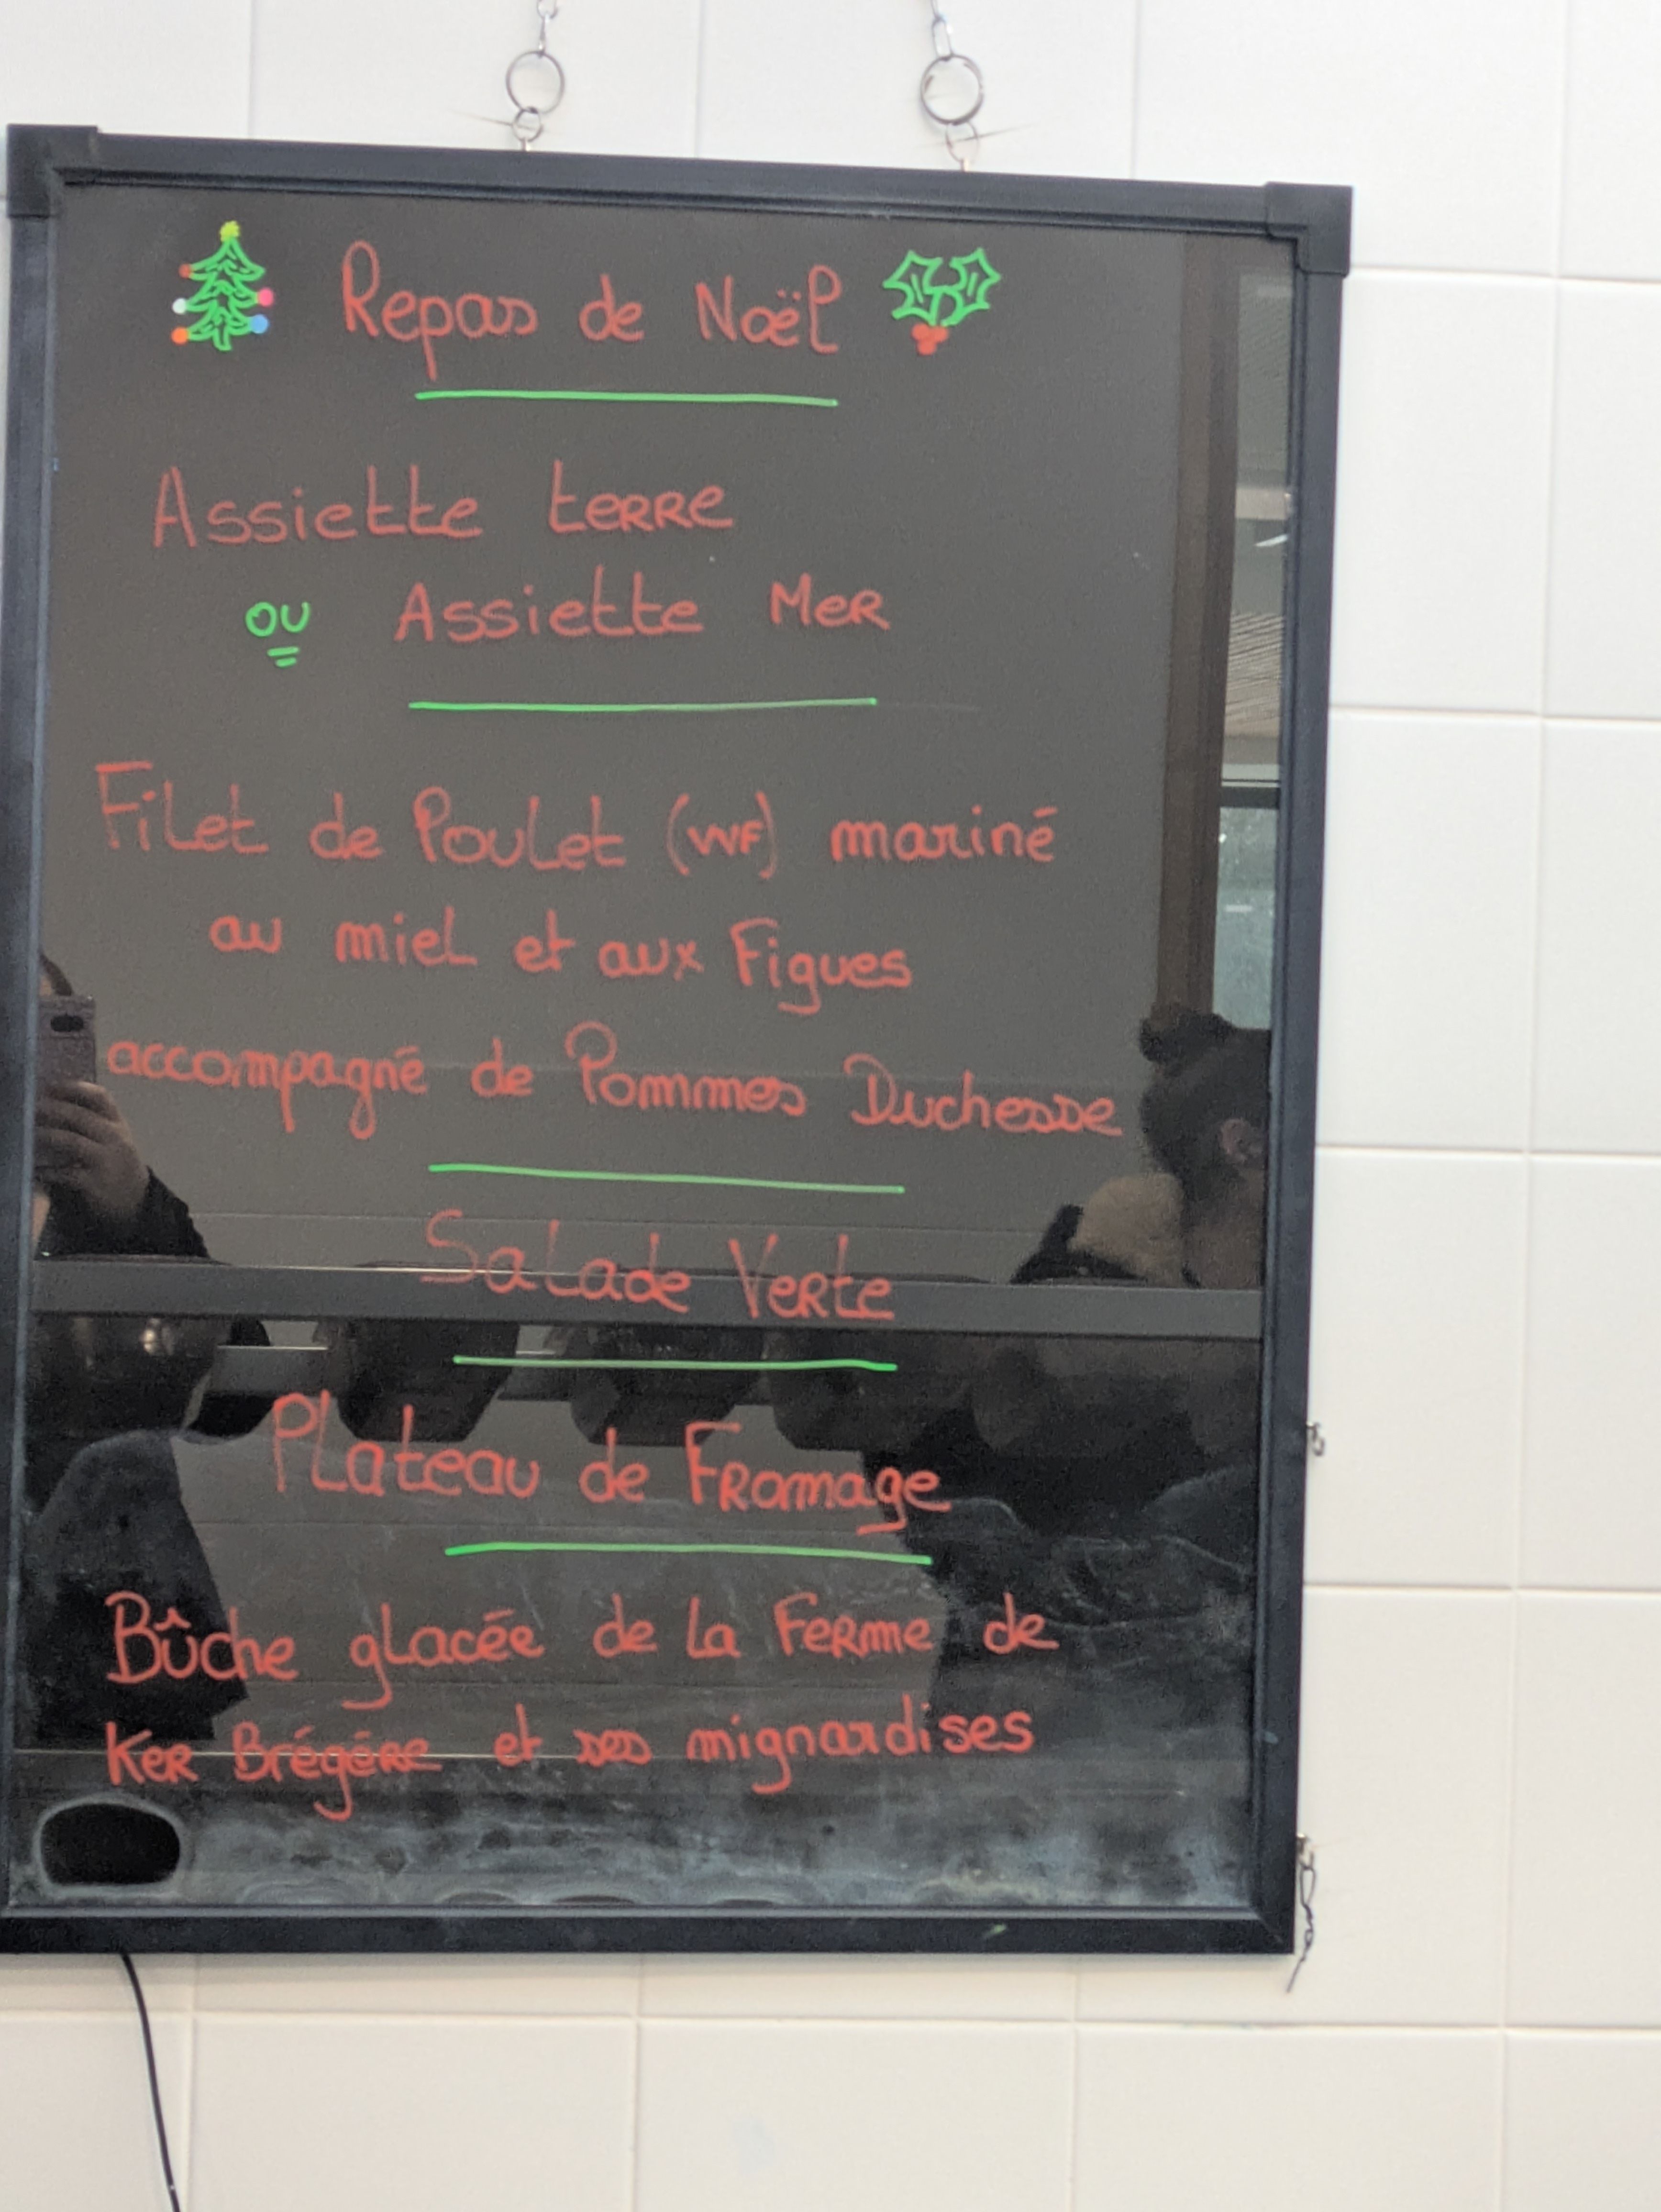 Repas de Noël
Assiette terre
ou Assiette Mer
Filet de Poulet (VVF) mariné
au miel et aux Figues
accompagné de Pommes Duchesse
Salade Verte
Plateau de Fromage
Bûche glacée de la Ferme de
Ker Brégére et ses mignardises